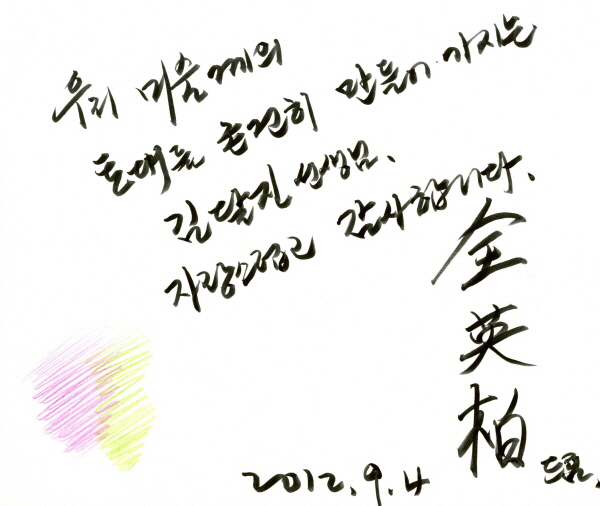 우리 미술계의
토대를 온전히 만들어 가시는
김달진 선생님.
자랑스럽고 감사합니다.
全英柏
2012. 9. 4 드림.